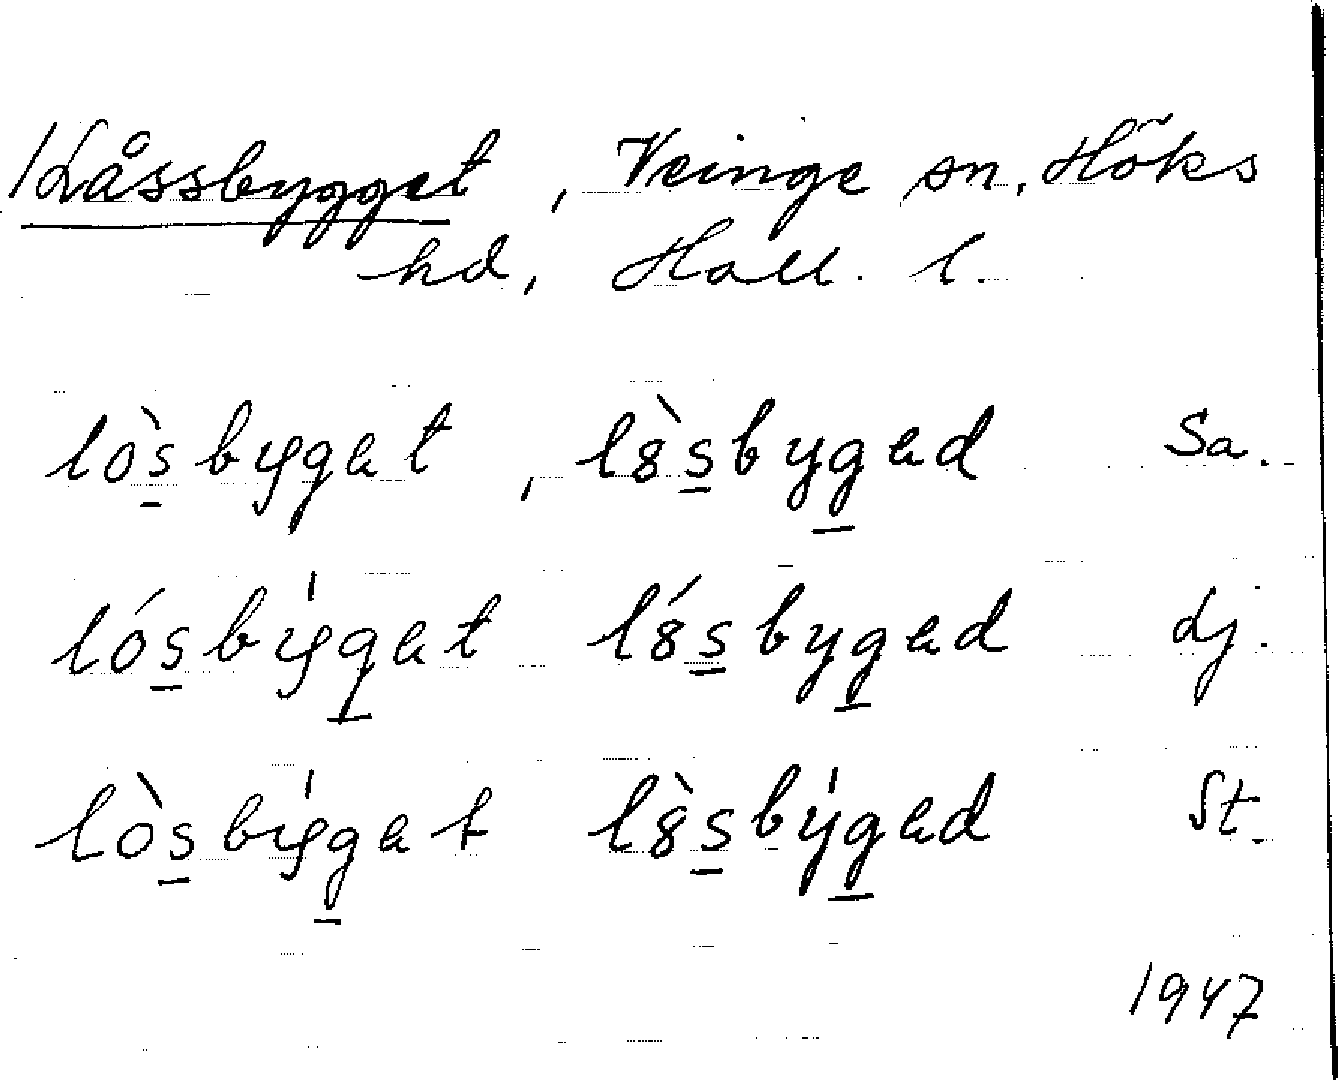 Låssbygget, Veinge sn, Höks
hd, Hall. l.
lòsbyget, l8̀sbyged Sa.
lósbýget l8́sbyged dj.
lòsbýget l8̀sbýged St.
1947